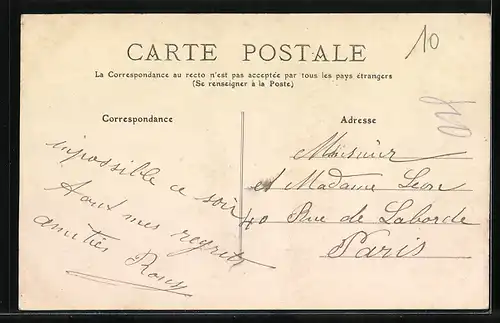 CARTE POSTALE
La Correspondance au recto n'est pas acceptée par tous les pays étrangers
(Se renseigner à la Poste)
Correspondance
Adresse
10
impossible ce soir
tout mes regrets
amitiés
Monsieur
et Madame Leon
40 Rue de Laborde
Paris